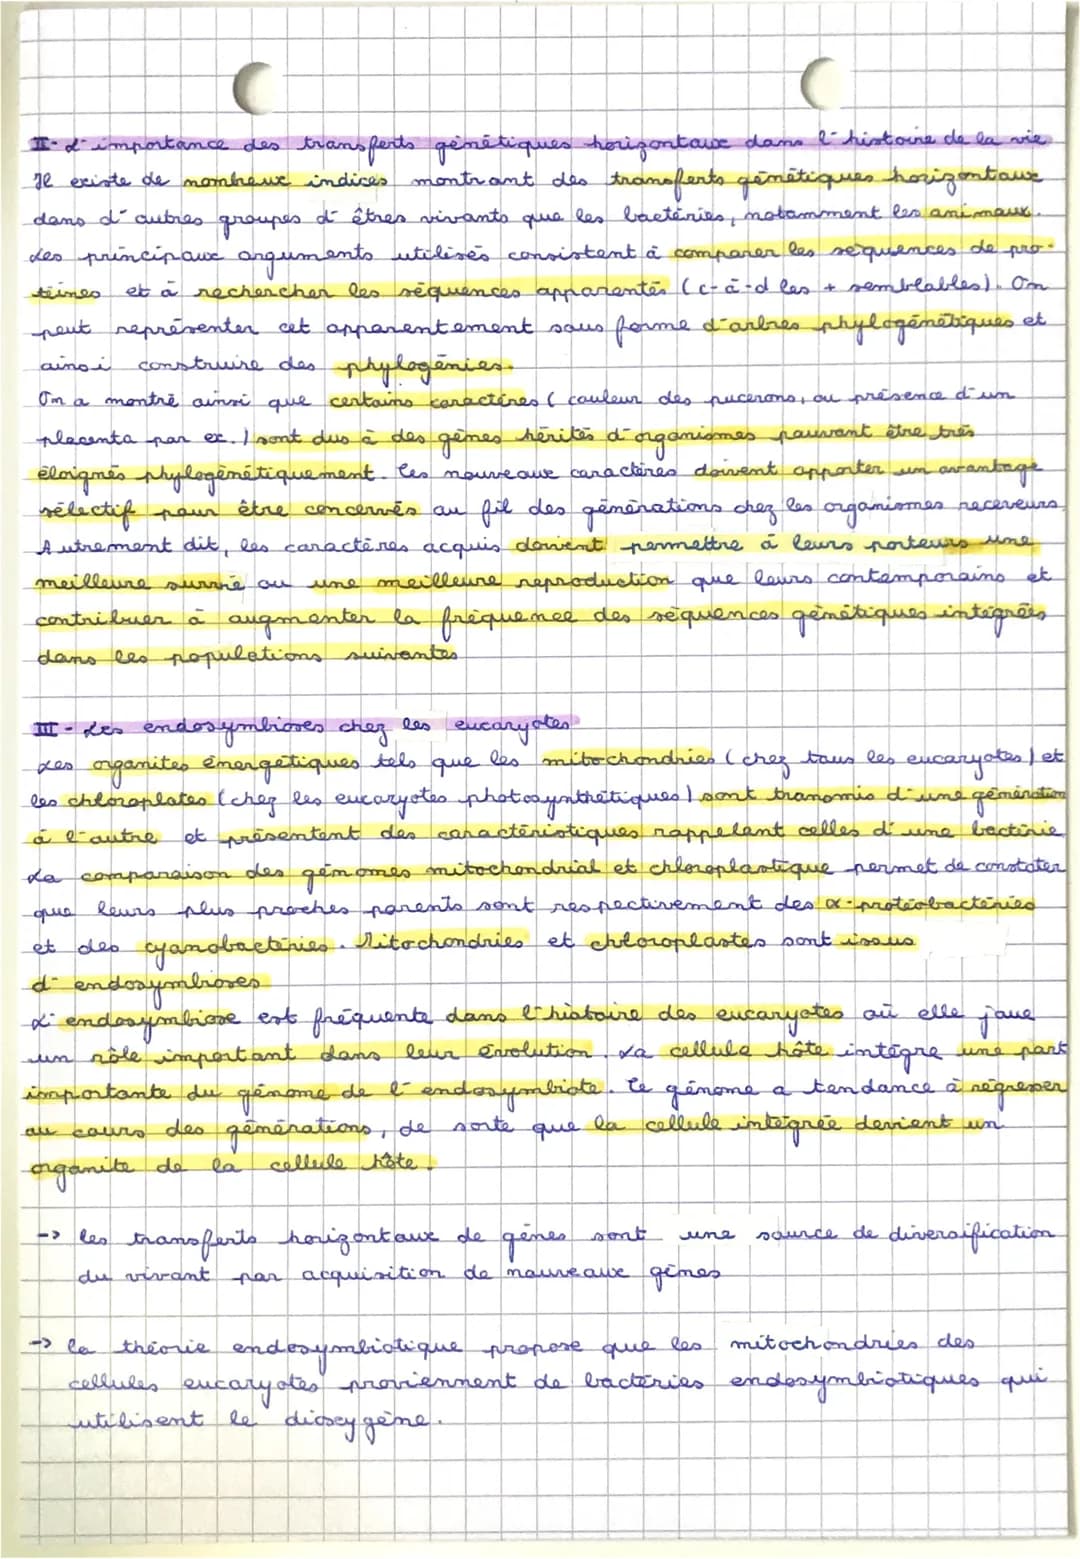 II - L'importance des transferts génétiques horizontaux dans l'histoire de la vie
Il existe de nombreux indices montrant des transferts génétiques horizontaux
dans d'autres groupes d'êtres vivants que les bactéries, notamment les animaux.
Les principaux arguments utilisés consistent à comparer les séquences de pro-
téines et à rechercher les séquences apparentés (c-à-d les + semblables). On
peut représenter cet apparentement sous forme d'arbres phylogénétiques et
ainsi construire des phylogénies.
On a montré ainsi que certains caractères (couleur des pucerons, ou présence d'un
placenta par ex.) sont dus à des gènes hérités d'organismes pouvant être très
éloignés phylogénétiquement. Ces nouveaux caractères doivent apporter un avantage
sélectif pour être concervés au fil des générations chez les organismes receveurs
Autrement dit, les caractères acquis doivent permettre à leurs porteurs une
meilleure survie ou une meilleure reproduction que leurs contemporains et
contribuer à augmenter la fréquence des séquences génétiques intégrées
dans les populations suivantes
III - Les endosymbioses chez les eucaryotes
Les organites énergétiques tels que les mitochondries (chez tous les eucaryotes) et
les chloroplastes (chez les eucaryotes photosynthétiques) sont transmis d'une génération
à l'autre et présentent des caractéristiques rappelant celles d'une bactérie
La comparaison des génomes mitochondrial et chloroplastique permet de constater
que leurs plus proches parents sont respectivement des α-protéobactéries
et des cyanobactéries. Mitochondries et chloroplastes sont issus
d'endosymbioses
L'endosymbiose est fréquente dans l'histoire des eucaryotes où elle joue
un rôle important dans leur évolution. La cellule hôte intègre une part
importante du génome de l'endosymbiote. Ce génome a tendance à régresser
au cours des générations, de sorte que la cellule intégrée devient un
organite de la cellule hôte.
-> les transferts horizontaux de gènes sont une source de diversification
du vivant par acquisition de nouveaux gènes
-> la théorie endosymbiotique propose que les mitochondries des
cellules eucaryotes proviennent de bactéries endosymbiotiques qui
utilisent le dioxygène.